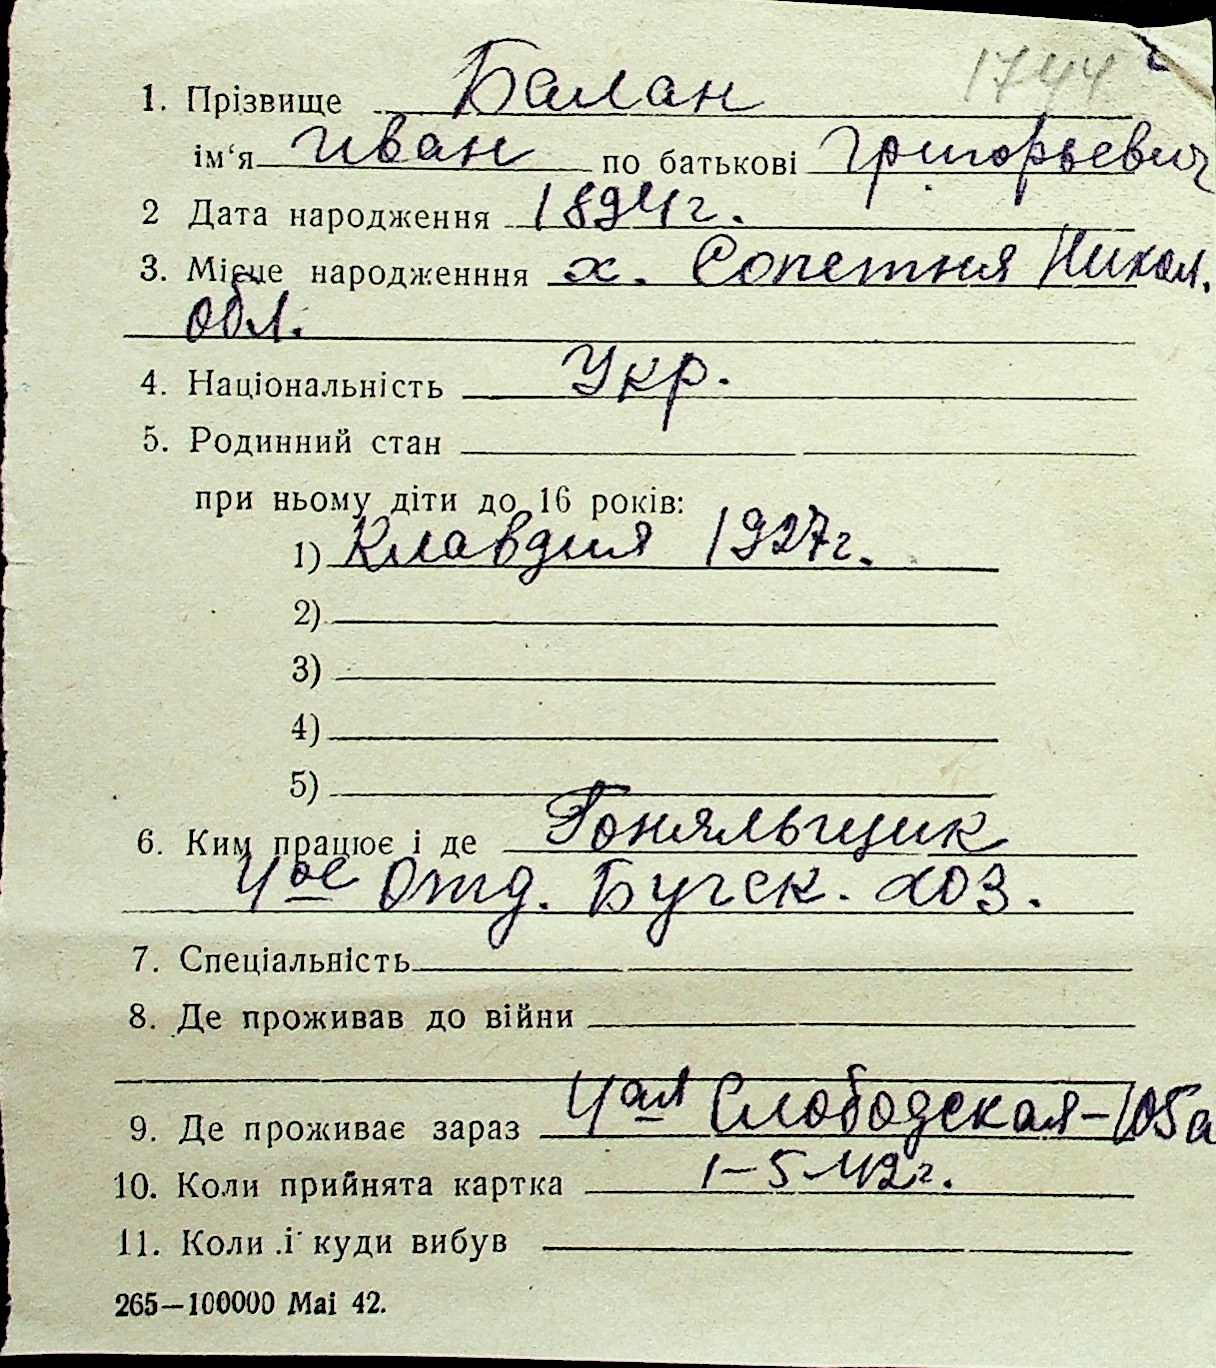 1744
1. Прізвище Балан
ім‘я Иван по батькові Григорьевич
2 Дата народження 1894г.
3. Місце народженння х. Сопетня Никол.
обл.
4. Національність Укр.
5. Родинний стан
при ньому діти до 16 років:
1) Клавдия 1927г.
2)
3)
4)
5)
6. Ким працює і де Гоняльщик
4ое Отд. Бугск. хоз.
7. Спеціальність
8. Де проживав до війни
9. Де проживає зараз 4ая Слободская-105а
10. Коли прийнята картка 1-5-42г.
11. Коли і куди вибув
265—100000 Mai 42.